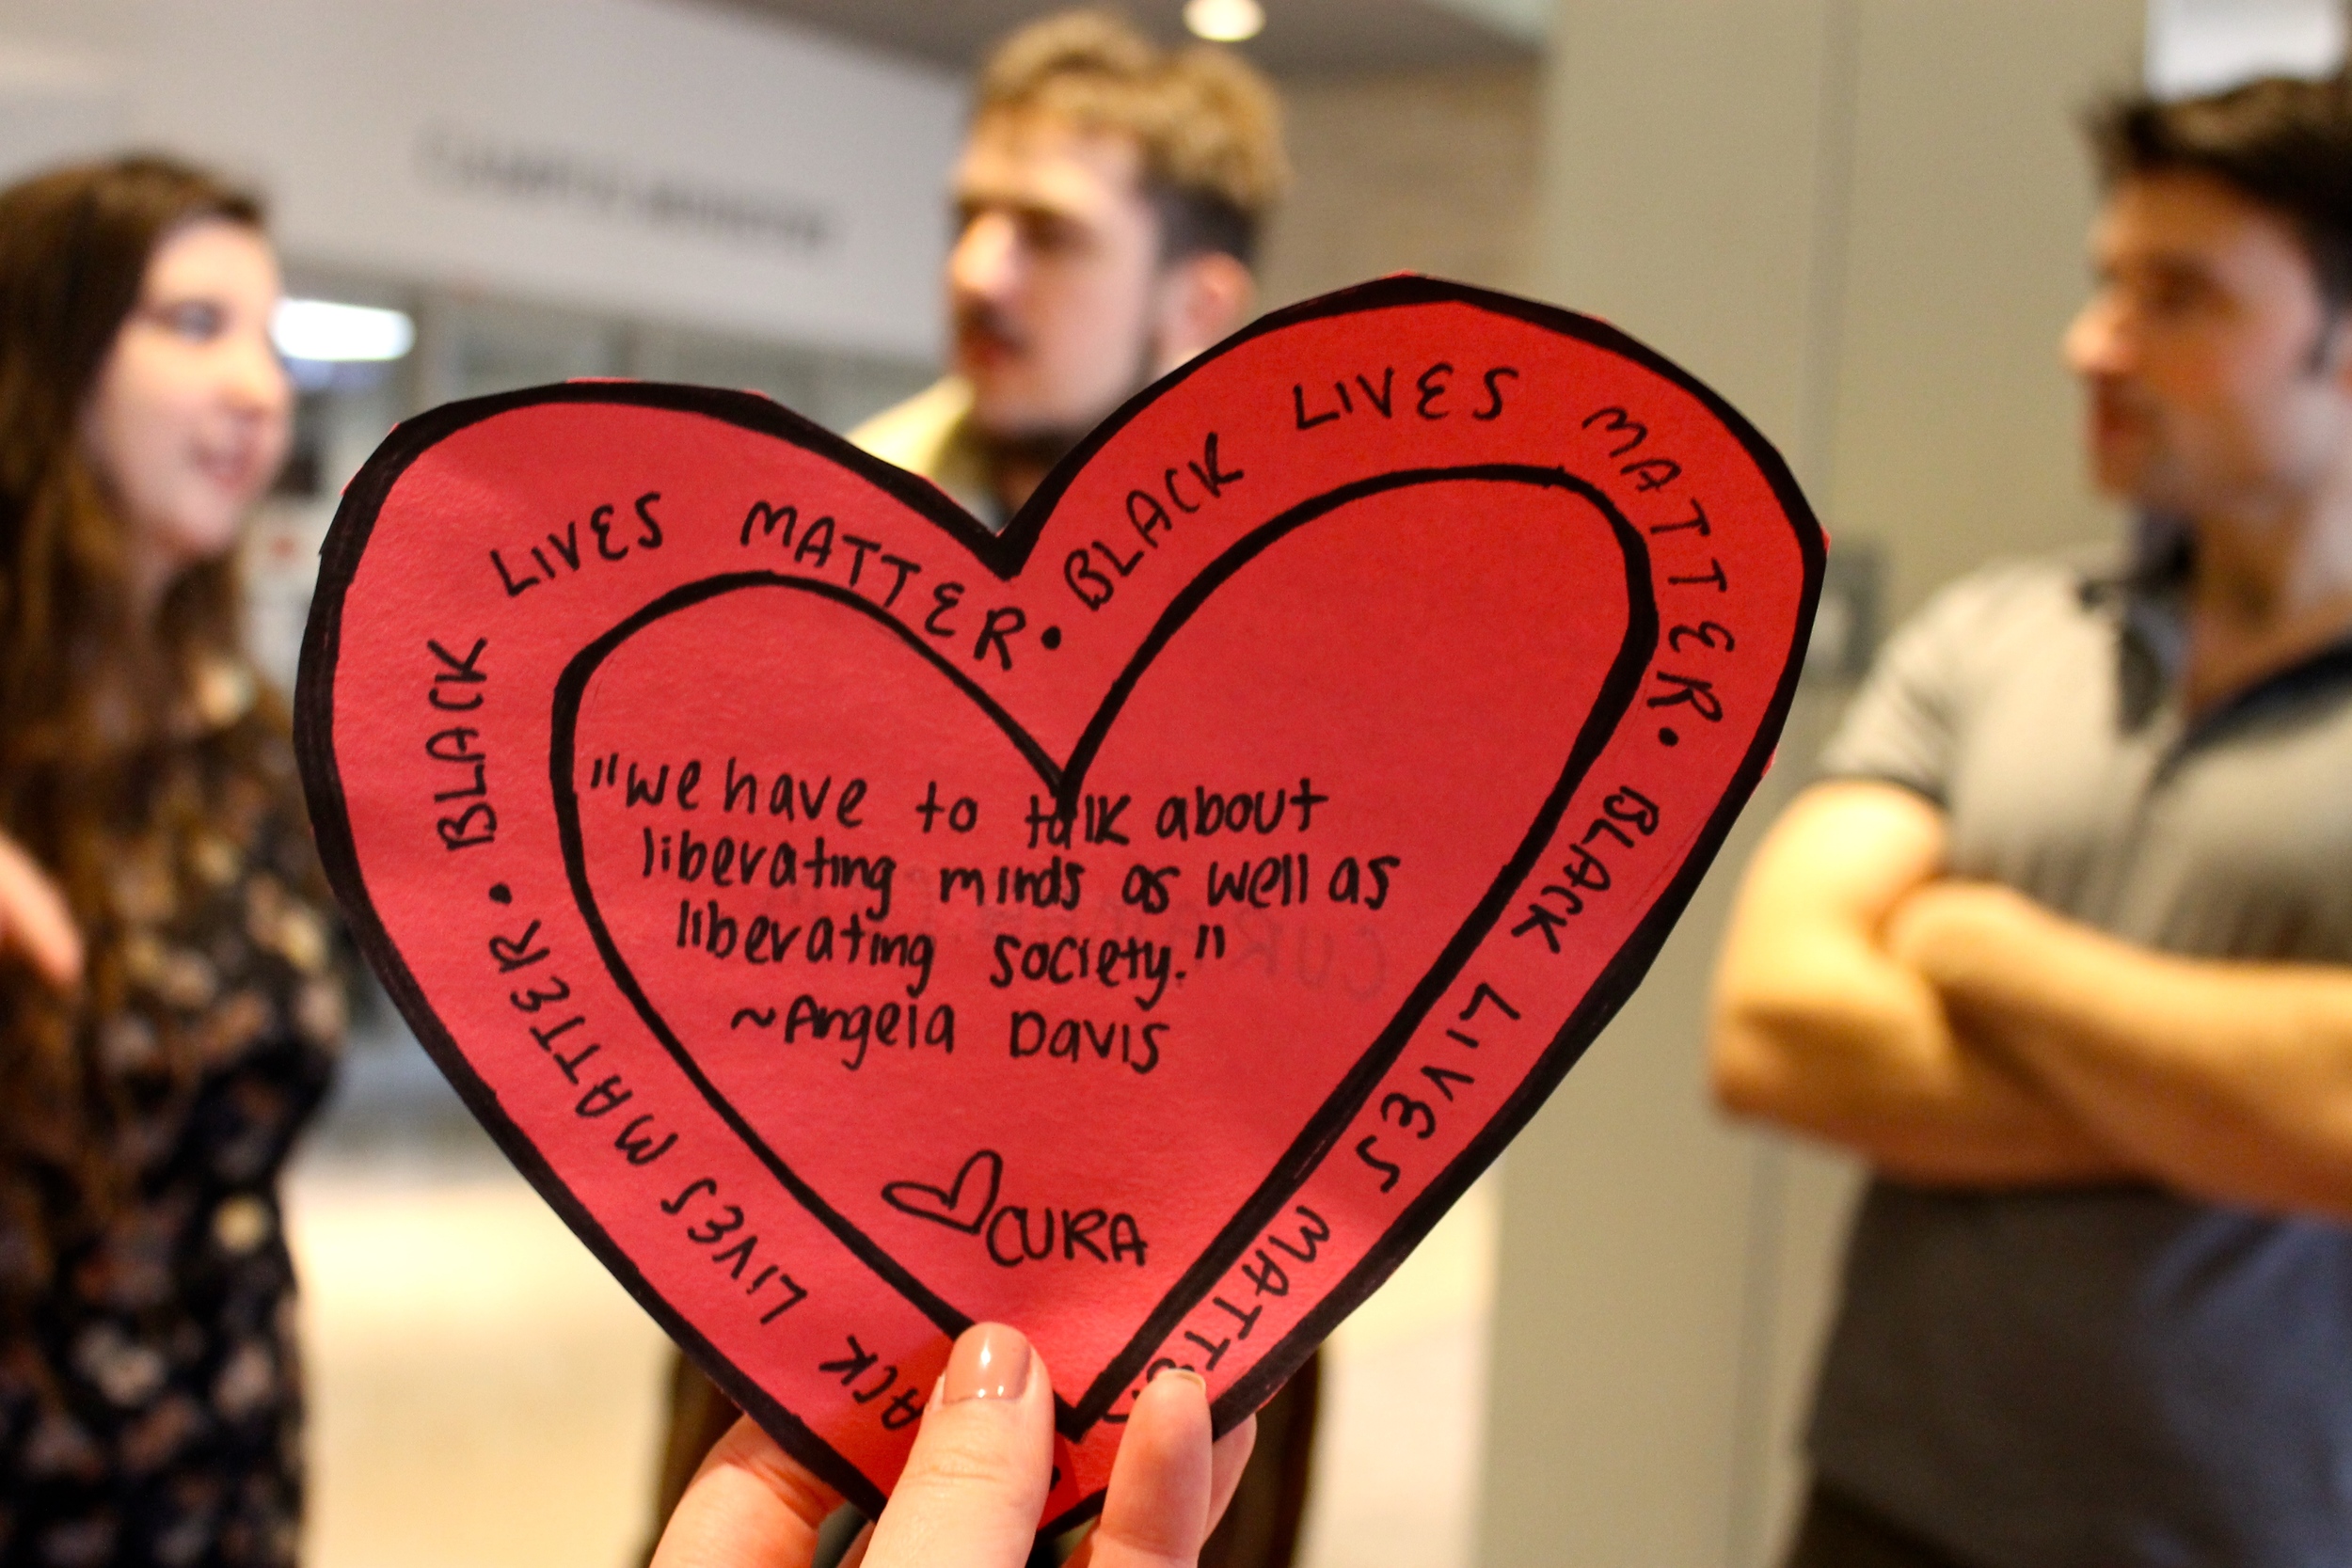 BLACK LIVES MATTER • BLACK LIVES MATTER • BLACK LIVES MATTER
ACK LIVES MATTER •
"We have to talk about
liberating minds as well as
liberating society."
~Angela Davis
♡CURA